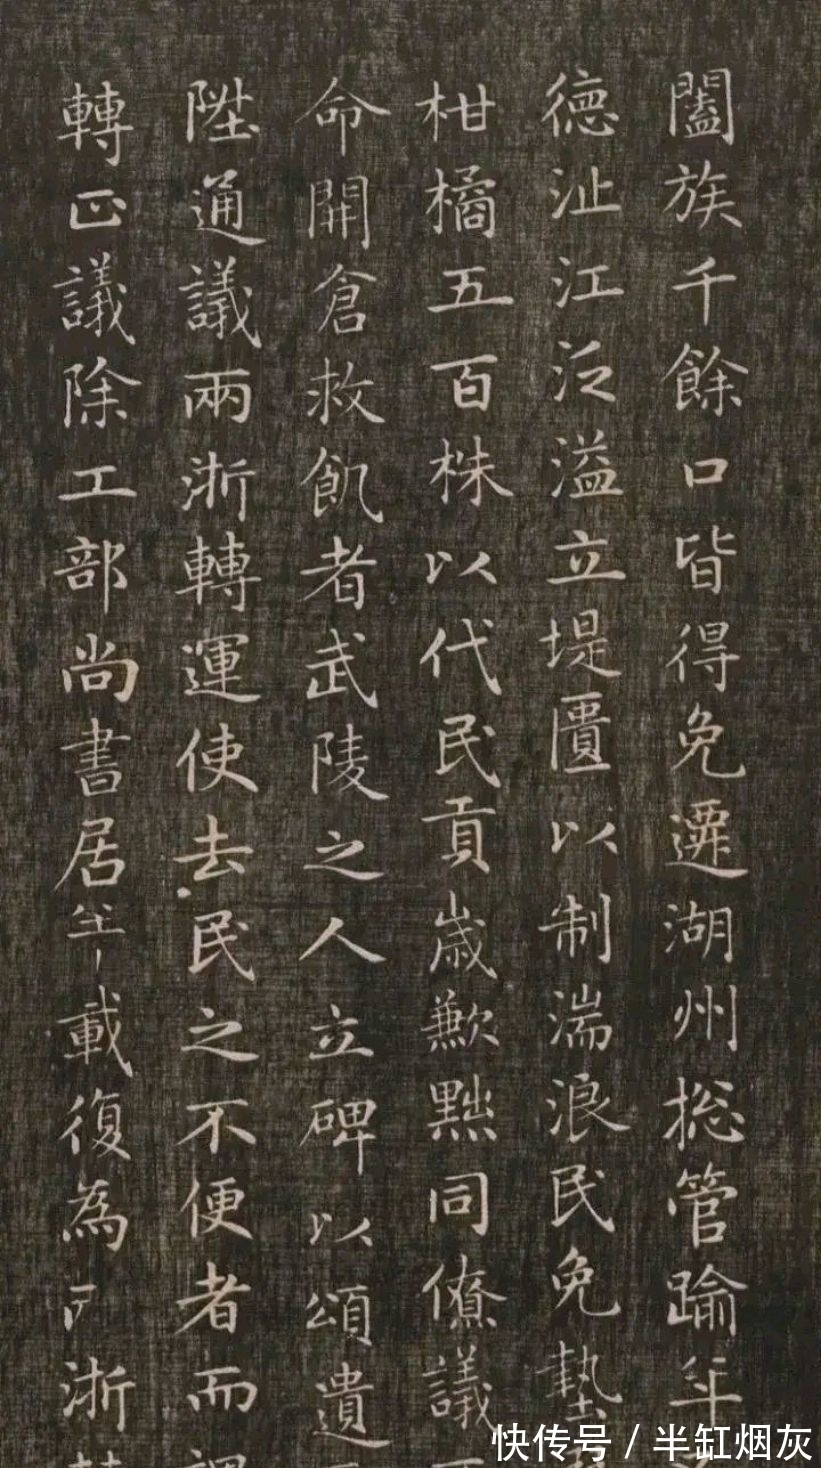 闔族千餘口皆得免遷湖州捴管踰年
德沚江泛溢立堤匱以制湍浪民免墊
柑橘五百株以代民貢歲歉黜同僚議
命開倉救飢者武陵之人立碑以頌遺
陞通議兩浙轉運使去民之不便者而
轉正議除工部尚書居半載復為戶浙
快传号/半缸烟灰